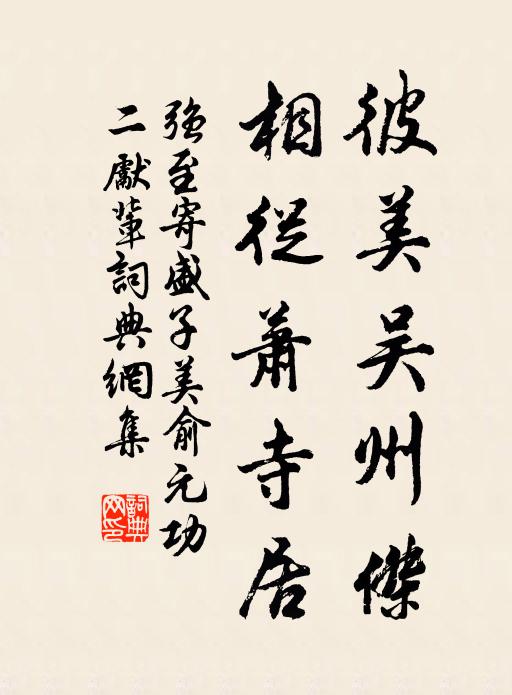 彼美吴州傑
相從蕭寺居
强至寄盛子美俞元功
二獻葷詞典網集
詞典網印